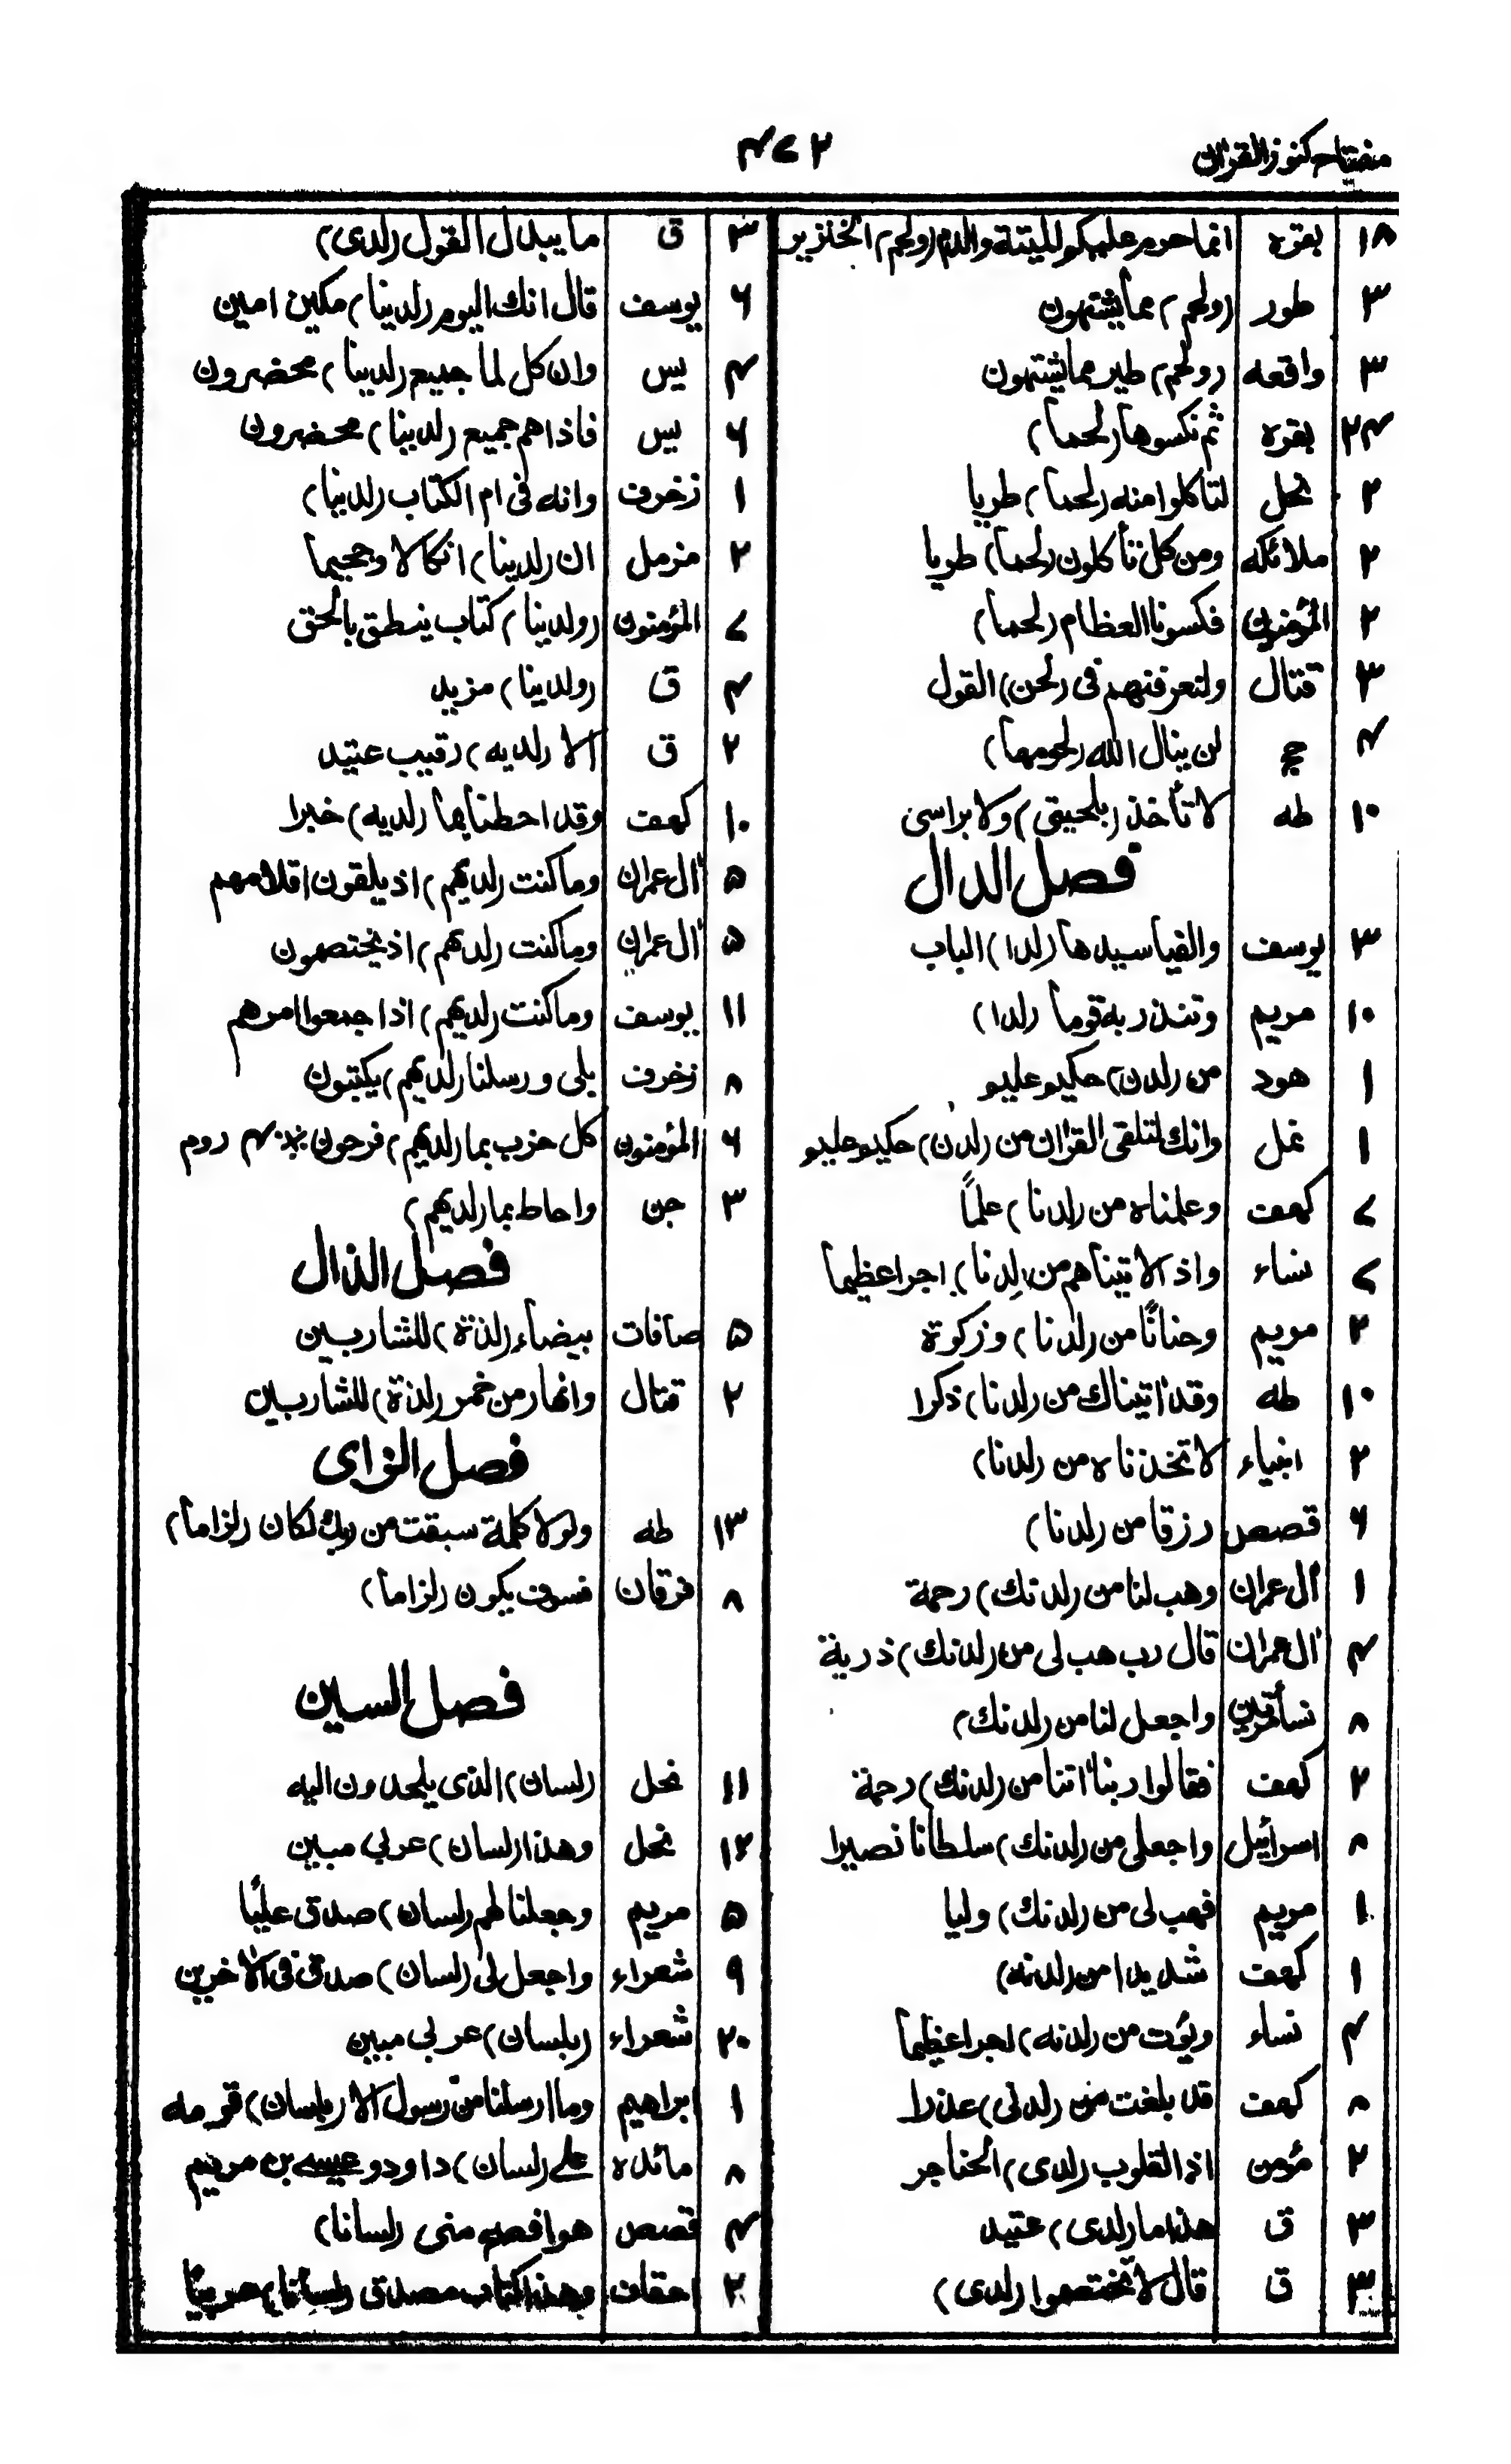 مفتاح كنوز القرآن
۴۷۲
۱۸ بقره انما حرم عليكم الميتة والدم (ولحم) الخنزير
۳ طور (ولحم) مما يشتهون
۳ واقعه (ولحم) طير مما يشتهون
۲۴ بقره ثم نكسوها (لحما)
۲ نحل لتاكلوا منه (لحما) طريا
۲ ملائكه ومن كل تأكلون (لحما) طريا
۲ المؤمنون فكسونا العظام (لحما)
۳ قتال ولتعرفنهم فى (لحن) القول
۴ حج لن ينال الله (لحومها)
۱۰ طه لا تأخذ (بلحيتى) ولا براسى
فصل الدال
۳ يوسف والفيا سيدها (لدا) الباب
۱۰ مريم وتنذر به قوما (لدا)
۱ هود من (لدن) حكيم عليم
۱ نمل وانك لتلقى القرآن من (لدن) حكيم عليم
۷ كهف وعلمناه من (لدنا) علمًا
۷ نساء واذ الاتيناهم من (لدنا) اجرا عظيما
۲ مريم وحنانًا من (لدنا) وزكوة
۱۰ طه وقد اتيناك من (لدنا) ذكرا
۲ انبياء لا تخذناه من (لدنا)
۶ قصص رزقا من (لدنا)
۱ آل عمران وهب لنا من (لدنك) رحمة
۴ آل عمران قال رب هب لى من (لدنك) ذرية
۸ نسأ واجعل لنا من (لدنك)
۲ كهف فقالوا ربنا اتنا من (لدنك) رحمة
۸ اسرائيل واجعلى من (لدنك) سلطانا نصيرا
۱ مريم فهب لى من (لدنك) وليا
۱ كهف شديدا من (لدنه)
۴ نساء ويؤت من (لدنه) اجرا عظيما
۸ كهف قد بلغت من (لدنى) عذرا
۲ مؤمن اذ القلوب (لدى) الحناجر
۳ ق هذا ما (لدى) عتيد
۳ ق قال لا تختصموا (لدى)
۳ ق ما يبدل القول (لدى)
۶ يوسف قال انك اليوم (لدينا) مكين امين
۴ يس وان كل لما جميع (لدينا) محضرون
۶ يس فاذا هم جميع (لدينا) محضرون
۱ زخرف وانه فى ام الكتاب (لدينا)
۲ مزمل ان (لدينا) انكالا وجحيما
۷ المؤمنون (ولدينا) كتاب ينطق بالحق
۴ ق (ولدينا) مزيد
۲ ق الا (لديه) رقيب عتيد
۱۰ كهف وقد احطنا بما (لديه) خبرا
۵ آل عمران وما كنت (لديهم) اذ يلقون اقلامهم
۵ آل عمران وما كنت (لديهم) اذ يختصمون
۱۱ يوسف وما كنت (لديهم) اذا جمعوا امرهم
۸ زخرف بلى ورسلنا (لديهم) يكتبون
۶ المؤمنون كل حزب بما (لديهم) فرحون ۴ روم
۳ جن واحاط بما (لديهم)
فصل الذال
۵ صافات بيضاء (لذة) للشاربين
۲ قتال وانهار من خمر (لذة) للشاربين
فصل الزاى
۱۳ طه ولولا كلمة سبقت من ربك لكان (لزاما)
۸ فرقان فسوف يكون (لزاما)
فصل السين
۱۱ نحل (لسان) الذى يلحدون اليه
۱۲ نحل وهذا (لسان) عربي مبين
۵ مريم وجعلنا لهم (لسان) صدق عليًا
۹ شعراء واجعل لى (لسان) صدق فى الاخرين
۲۰ شعراء (بلسان) عربي مبين
۱ ابراهيم وما ارسلنا من رسول الا (بلسان) قومه
۸ مائده على (لسان) داود وعيسى بن مريم
۴ قصص هو افصح منى (لسانا)
۲ احقاف وهذا كتاب مصدق (لسانا) عربيًا